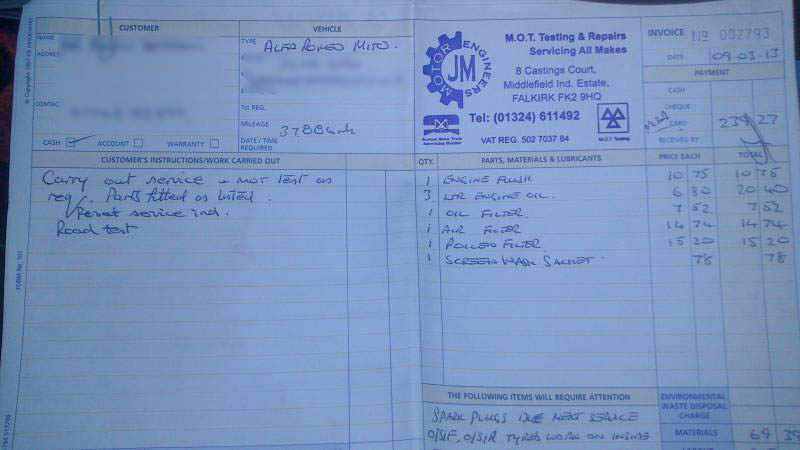 CUSTOMER
NAME
ADDRESS
CONTAC
CASH ✓ ACCOUNT WARRANTY
VEHICLE
TYPE ALFA ROMEO MITO.
1st REG.
MILEAGE 37886
DATE / TIME
REQUIRED
MOTOR ENGINEERS
JM
M.O.T. Testing & Repairs
Servicing All Makes
8 Castings Court,
Middlefield Ind. Estate,
FALKIRK FK2 9HQ
Tel: (01324) 611492
VAT REG. 502 7037 64
M.O.T. Testing
INVOICE No 002793
DATE 09-03-13
PAYMENT
CASH
CHEQUE
VISA CARD 239 27
RECEIVED BY
CUSTOMER'S INSTRUCTIONS/WORK CARRIED OUT
Carry out service + MOT test as
req. Parts fitted as listed.
Reset service ind.
Road test
QTY. PARTS, MATERIALS & LUBRICANTS PRICE EACH TOTAL
1 ENGINE FLUSH. 10 75 10 75
3 LTR ENGINE OIL. 6 80 20 40
1 OIL FILTER 7 52 7 52
1 AIR FILTER 14 74 14 74
1 POLLEN FILTER 15 20 15 20
1 SCREEN WASH SACHET. 78 78
THE FOLLOWING ITEMS WILL REQUIRE ATTENTION
SPARK PLUGS DUE NEXT SERVICE
O/S/F, O/S/R TYRES WORN ON INSIDE
ENVIRONMENTAL
WASTE DISPOSAL
CHARGE
MATERIALS 69 39
FORM No. 101